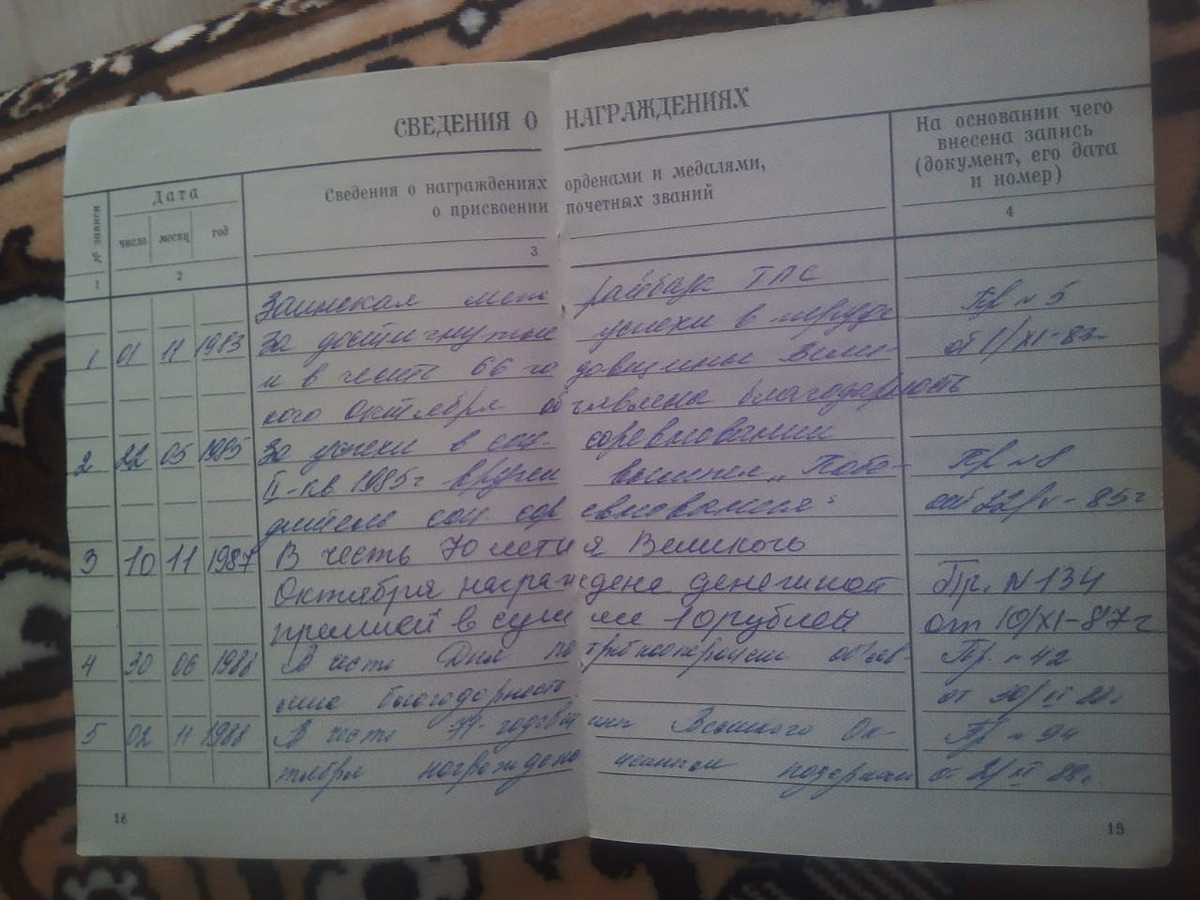 СВЕДЕНИЯ О НАГРАЖДЕНИЯХ
№ записи
Дата
число месяц год
Сведения о награждениях орденами и медалями,
о присвоении почетных званий
На основании чего
внесена запись
(документ, его дата
и номер)
1 2 3 4
Заинская райбаза
1 01 11 1983 За достигнутые успехи в труде Пр № 5
и в честь 66 годовщины Вели- от 1/XI-83г
кого Октября объявлена благодарность
2 22 05 1985 За успехи в соц. соревновании
II-кв 1985г вручен вымпел „Побе- Пр №8
дитель соц соревнования" от 22/V-85г
3 10 11 1987 В честь 70 летия Великого
Октября награждена денежной Пр. N 134
премией в сумме 10 рублей от 10/XI-87г
4 30 06 1988 В честь Дня потребкооперации объяв- Пр. №42
благодарность от 30/
5 02 11 1988 В честь 71-годовщины Великого Ок- Пр №94
тября награждена подарком от 2/XI 88г
18
19